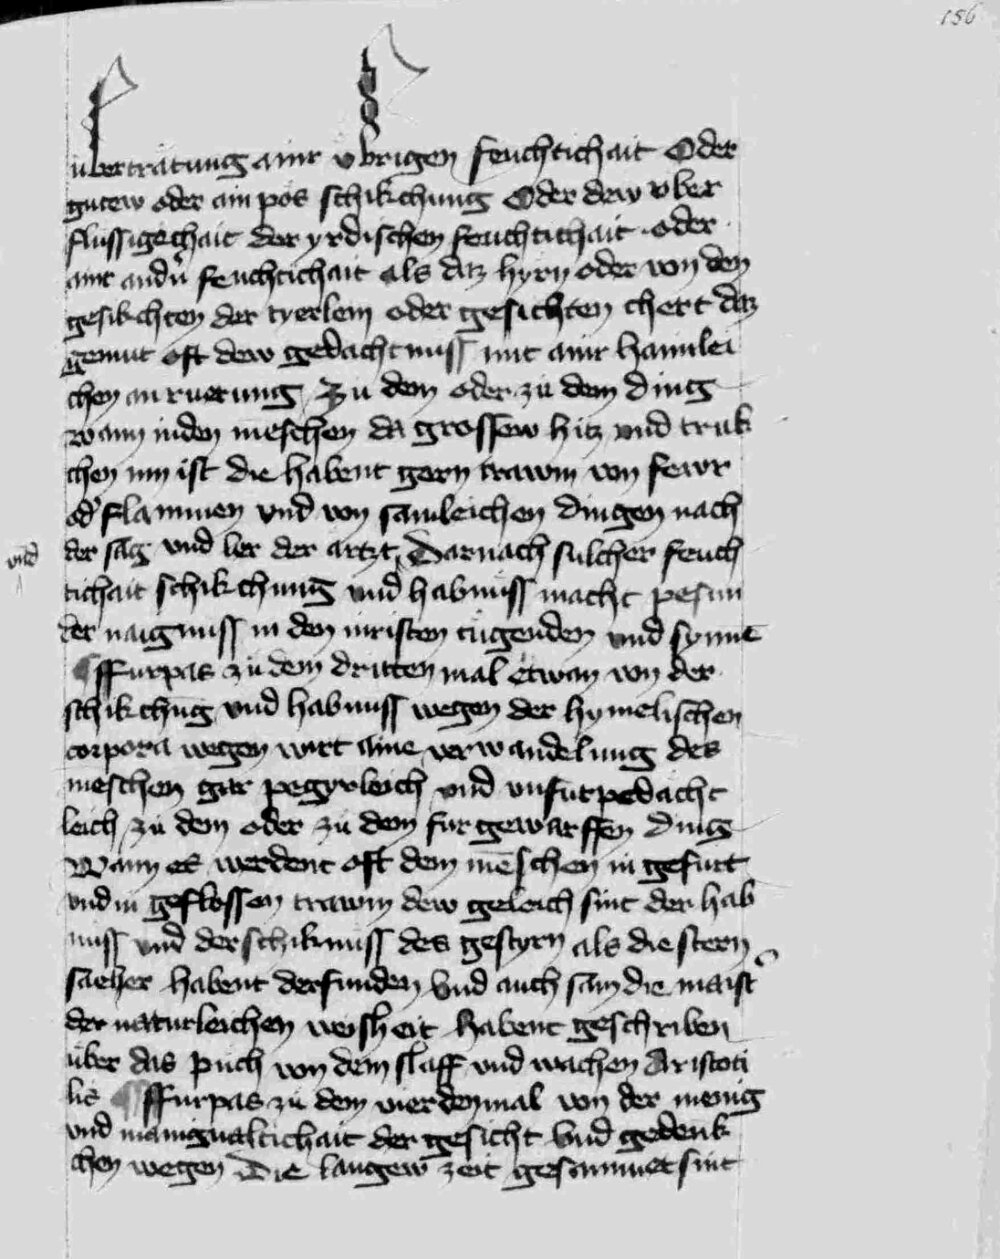 156
übertratung ainr vbrigen feuchtichait Oder
gutew oder ain pos schikchung Oder dew vber
flussigechait der yrdischen feuchtichait oder
ainr andn̄ feuchtichait als daz hyrn oder von den
gesikchten der tyerlein oder gesichten chert daz
gemut oft dew gedachtnuss mit ainr haimlei
chen an ruerung Zu dem oder zu dem ding
wann in den meschen da grossew hitz vnd truk
chen inn ist die habent gern trawm von fewr
od' flammen vnd von samleichen dingen nach
vnd der sag vnd ler der artzt Darnach sulcher feuch
tichait schikchung vnd habnuss macht pesun
der naignuss in den inristen tugenden vnd synnē
ffurpas zu dem dritten mal etwan von der
schikchūg vnd habnuss wegen der hymelischen
corpora wegen wirt aine verwandelung des
meschen gar pegyrleich vnd vnfurpedacht
leich zu dem oder zu dem furgewarffen ding
Wann es werdent oft dem mēschen in gefurt
vnd in geflossen trawm dew geleich sint der hab
nuss vnd der schiknuss des gestyrn als die stern
saeher habent derfunden Vnd auch sam die maist'
der naturleichen weisheit habent geschriben
über das puch von dem slaff vnd wachen Aristoti
lis ffurpas zu dem vierden mal von der menig
vnd manigualtichait der gesicht Vnd gedenk
chen wegen Die langew zeit gesammet sint